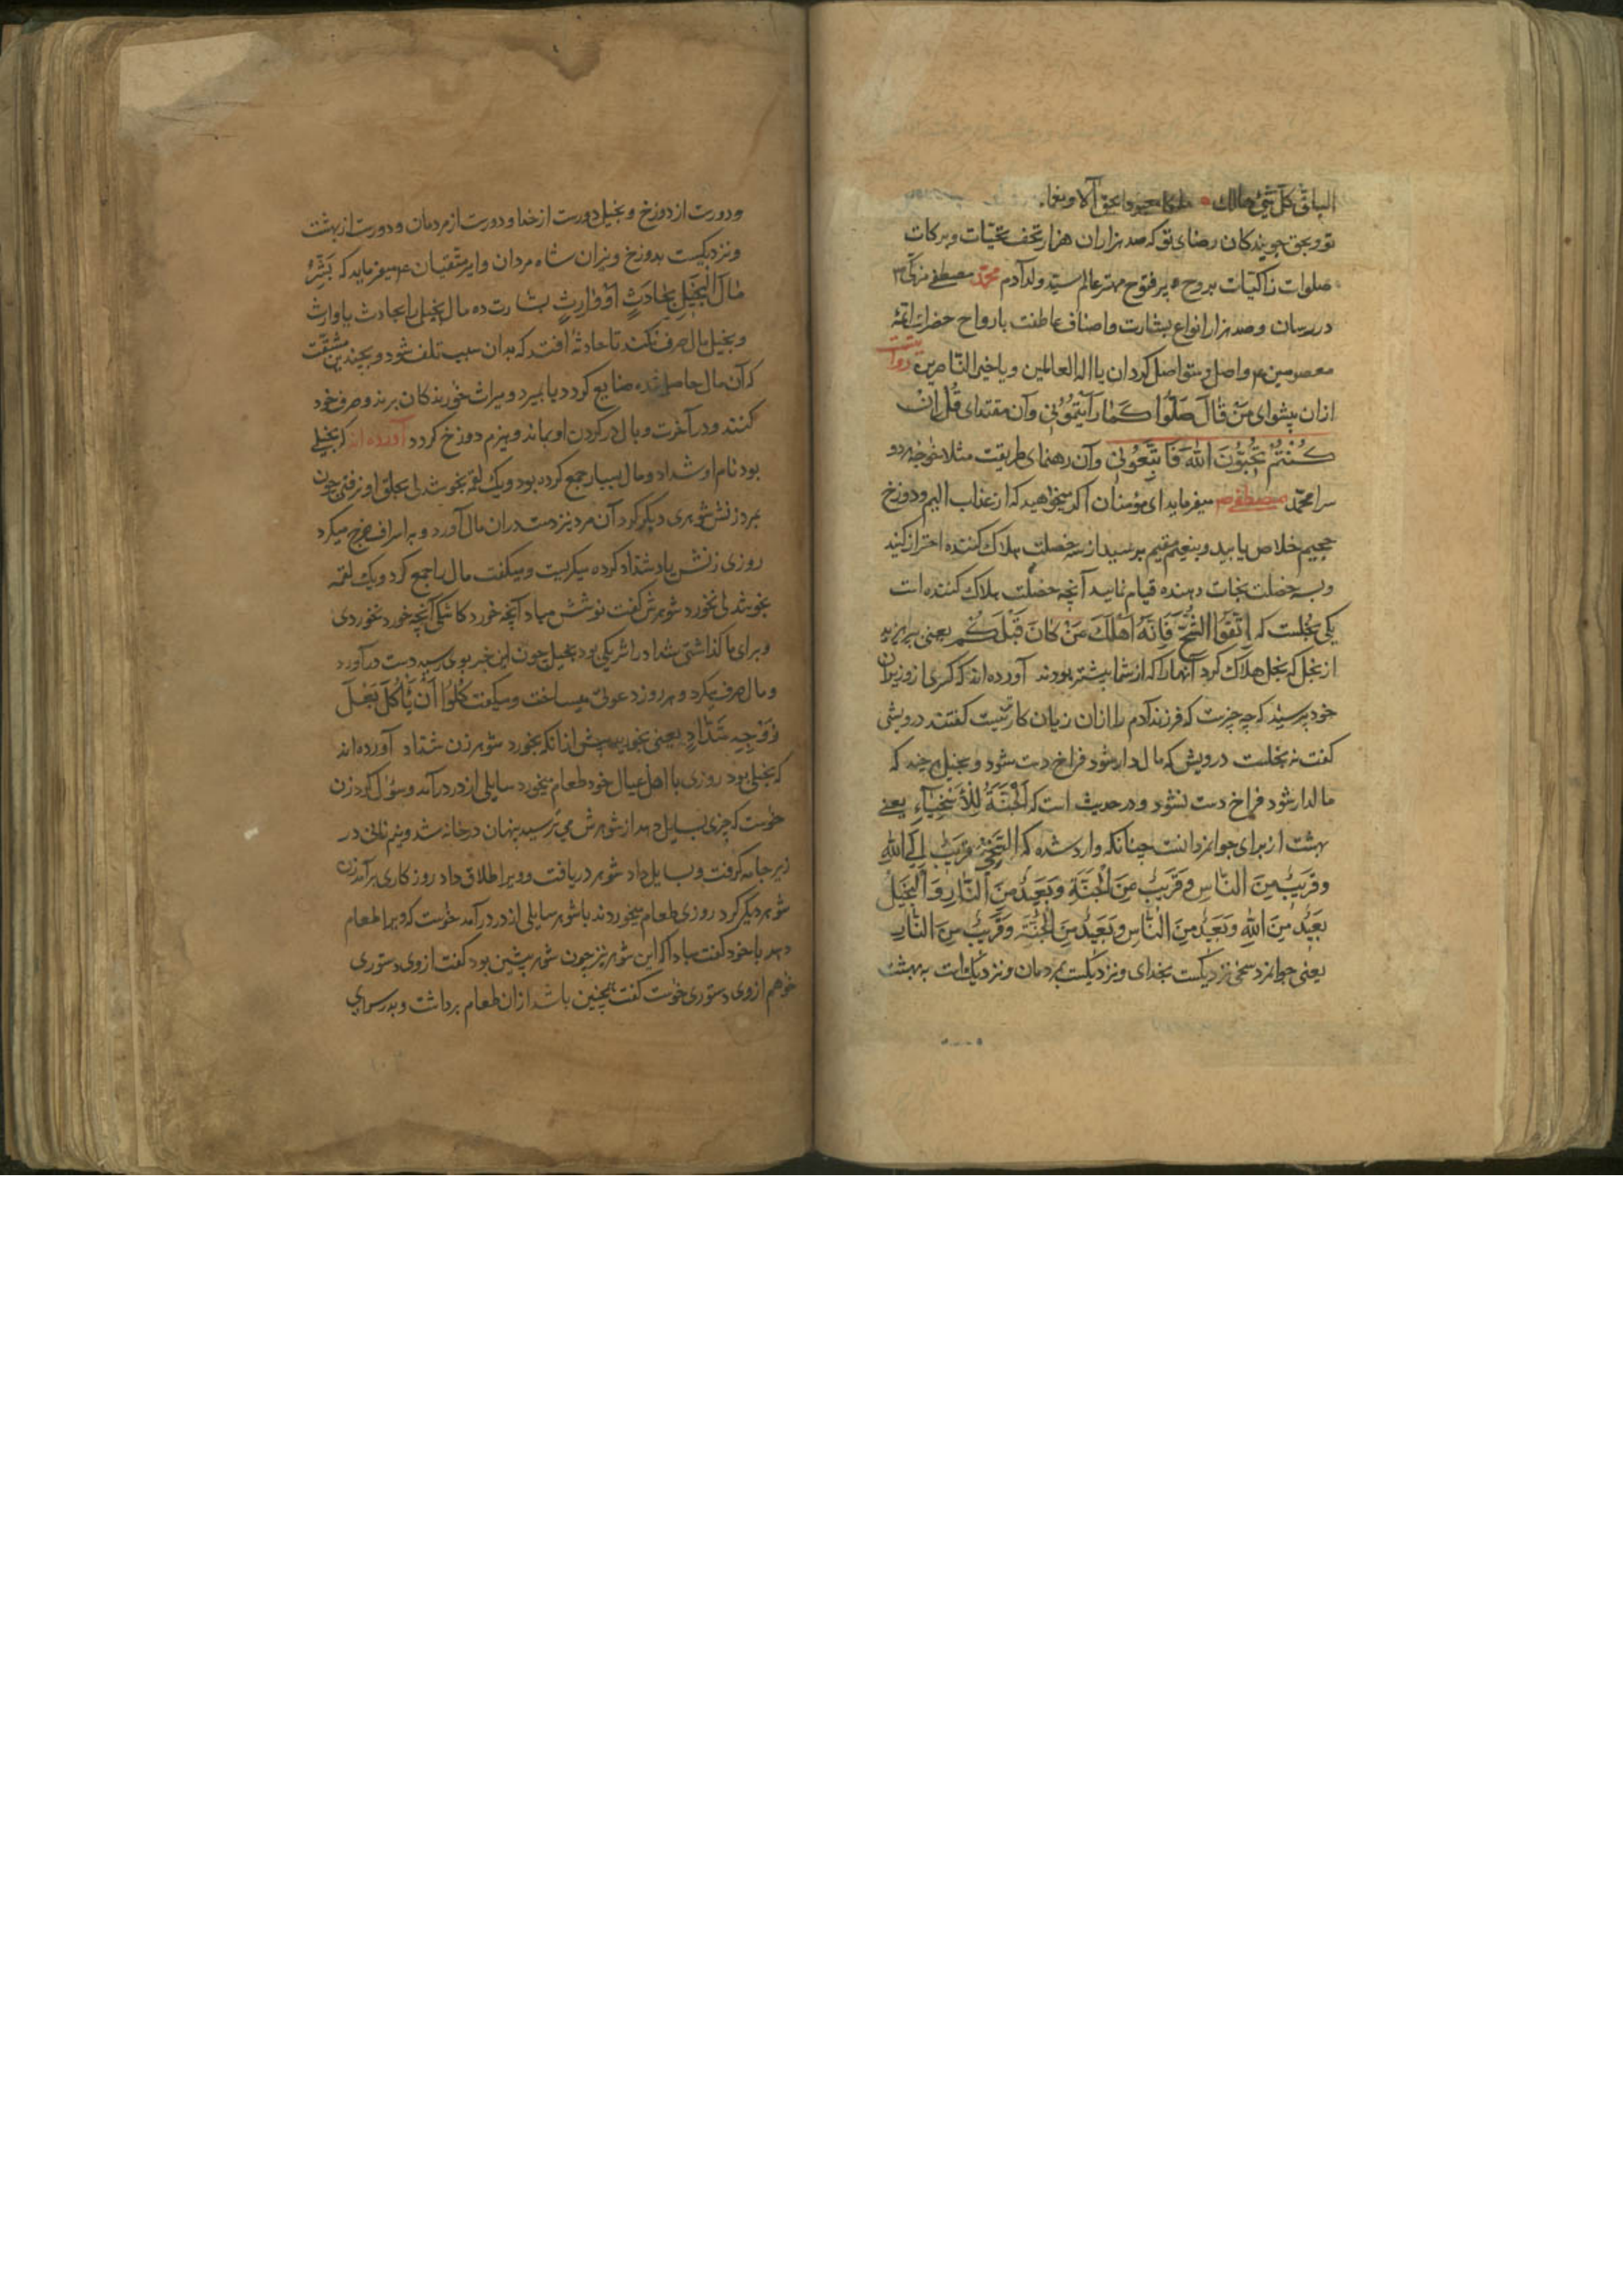 الباقی کل شیء هالک بحق آلا و نعماء
تو و بحق جویندکان رضای تو که صد هزاران هزار تحف تحیّات و برکات
صلوات زاکیات بروح پر فتوح مهتر عالم سیّد ولد آدم محمّد مصطفی
در رسان و صد هزار انواع بشارت و اصناف عاطفت بارواح حضرات ائمّهٔ
معصومین واصل و متواصل کردان یا اله العالمین و یا خیر النّاصرین روایتست
ازان پیشوای مَنْ قٰالَ صَلُّوا کَمٰا رَاَیْتُمُوُنی وآن مقتدای قُلْ اِنْ
کُنْتُمْ تُحِبُّونَ اللّٰهَ فَاتَّبِعُونی وآن رهنمای طریقت مثلا خواجهٔ دو
سرا محمّد مصطفی ص میفرماید ای مؤمنان اکر میخواهید که از عذاب الیم و دوزخ
جحیم خلاص یابید و بنعیم مقیم برسید از سه خصلت هلاک کننده احتراز کنید
و بسه خصلت نجات دهنده قیام نمایید آنچه خصلت هلاک کننده است
یکی بخلست که اِتَّقُوا الشُّحَّ فَاِنَّهُ اَهْلَکَ مَنْ کٰانَ قَبْلَکُمْ یعنی بپرهیزید
از بخل که بخل هلاک کرد آنهارا که از شما پیشتر بودند آورده‌اند که کسری از وزیران
خود پرسید که چه چیزست که فرزند آدم را ازان زیان کارتر نیست کفتند درویشی
کفت نه بخلست درویش که مال دار شود فراخ دست شود و بخیل هر چند که
مالدار شود فراخ دست نشود و در حدیث است که اَلْجَنَّةُ لِلْاَسْخِیٰآءِ یعنے
بهشت از برای جوانمردانست چنانکه وارد شده که اَلسَّخِیُّ قَرِیبٌ اِلَی اللّٰهِ
وَقَرِیبٌ مِنَ النّٰاسِ وَقَرِیبٌ مِنَ الْجَنَّةِ وَبَعِیدٌ مِنَ النّٰارِ وَالْبَخِیلُ
بَعِیدٌ مِنَ اللّٰهِ وَبَعِیدٌ مِنَ النّٰاسِ وَبَعِیدٌ مِنَ الْجَنَّةِ وَقَرِیبٌ مِنَ النّٰارِ
یعنی جوانمرد سخی نزدیکست بخدای و نزدیکست بمردمان و نزدیک است به بهشت
و دورست از دوزخ و بخیل دورست از خدا و دورست از مردمان و دورست از بهشت
و نزدیکست بدوزخ و نیزان شاه مردان و امیر متّقیان ع میفرماید که بَشِّرْ
مٰالَ الْبَخیلِ بِحٰادَثٍ اَوْوٰارِثٍ بشارت ده مال بخیل را بحادث یا وارث
و بخیل مال صرف نکند تا حادثهٔ افتد که بدان سبب تلف شود و بچندین مشقّت
که آن مال حاصل شده ضایع کردد یا بمیرد و میراث خورندکان برند و صرف خود
کنند و در آخرت وبال در کردن او بماند و هیزم دوزخ کردد آورده‌اند که بخیلے
بود نام او شداد و مال بسیار جمع کرده بود و یک لقمه بخوشدلی بحلق او نرفتی چون
بمرد زنش شوهری دیکر کرد آن مرد نیز دست دران مال آورد و به اسراف خرج میکرد
روزی زنش یاد شدّاد کرده میکریست و میکفت مال را جمع کرد و یک لقمه
بخوشدلی نخورد شوهرش کفت نوشش مباد آنچه خورد کاشکی آنچه خورد نخوردی
و برای ما کذاشتی شداد را شریکی بود بخیل چون این خبر بوی رسید دست در آورد
و مال صرف میکرد و هر روز دعوتی میساخت و میکفت کُلُوا اَنْ یَأْکُلَ بَعْلُ
زَوْجِهِ شَدّٰادٍ یعنی بخورید پیش ازانکه بخورد شوهر زن شدّاد آورده‌اند
که بخیلی بود روزی با اهل عیال خود طعام میخورد سایلی از در درآمد و سؤال کرد زن
خواست که چیزی بسایل دهد از شوهرش می‌ترسید پنهان در خانه شد و نیم نانی در
زیر جامه کرفت و بسایل داد شوهر دریافت و ویرا طلاق داد روزکاری برآمد زن
شوهر دیکر کرد روزی طعام میخوردند با شوهر سایلی از در درآمد خواست که ویرا طعام
دهد با خود کفت مبادا که این شوهر نیز چون شوهر پیشین بود کفت از وی دستوری
خواهم از وی دستوری خواست کفت همچنین باشد ازان طعام برداشت و بدر سرای